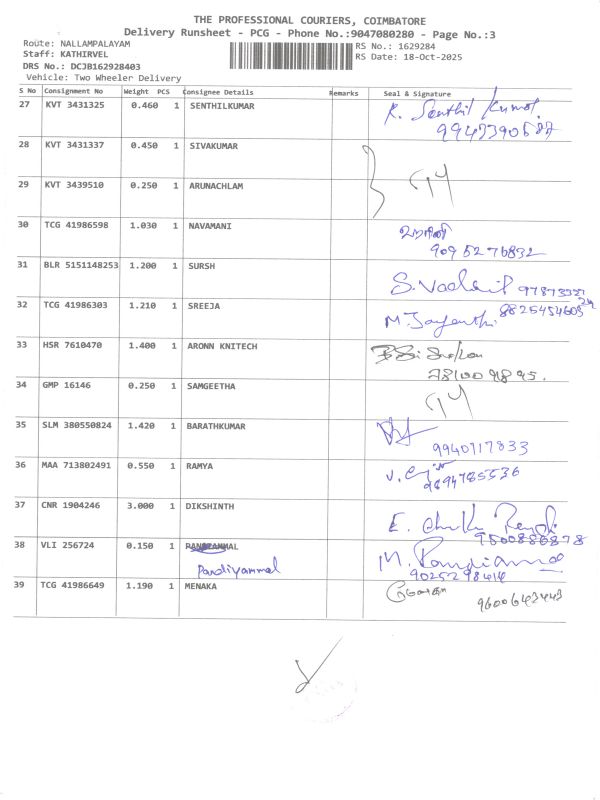 THE PROFESSIONAL COURIERS, COIMBATORE
Delivery Runsheet - PCG - Phone No.:9047080280 - Page No.:3
Route: NALLAMPALAYAM
Staff: KATHIRVEL
DRS No.: DCJB162928403
Vehicle: Two Wheeler Delivery
RS No.: 1629284
RS Date: 18-Oct-2025
S No Consignment No Weight PCS Consignee Details Remarks Seal & Signature
27 KVT 3431325 0.460 1 SENTHILKUMAR K. Senthil Kumar
28 KVT 3431337 0.450 1 SIVAKUMAR
29 KVT 3439510 0.250 1 ARUNACHLAM
30 TCG 41986598 1.030 1 NAVAMANI
9095276832
31 BLR 5151148253 1.200 1 SURSH
32 TCG 41986303 1.210 1 SREEJA M. Jayanthi
33 HSR 7610470 1.400 1 ARONN KNITECH
34 GMP 16146 0.250 1 SAMGEETHA
35 SLM 380550824 1.420 1 BARATHKUMAR
9940717833
36 MAA 713802491 0.550 1 RAMYA
37 CNR 1904246 3.000 1 DIKSHINTH
38 VLI 256724 0.150 1 PANDIAMMAL
Pandiyammal
9025298414
39 TCG 41986649 1.190 1 MENAKA
9600643443